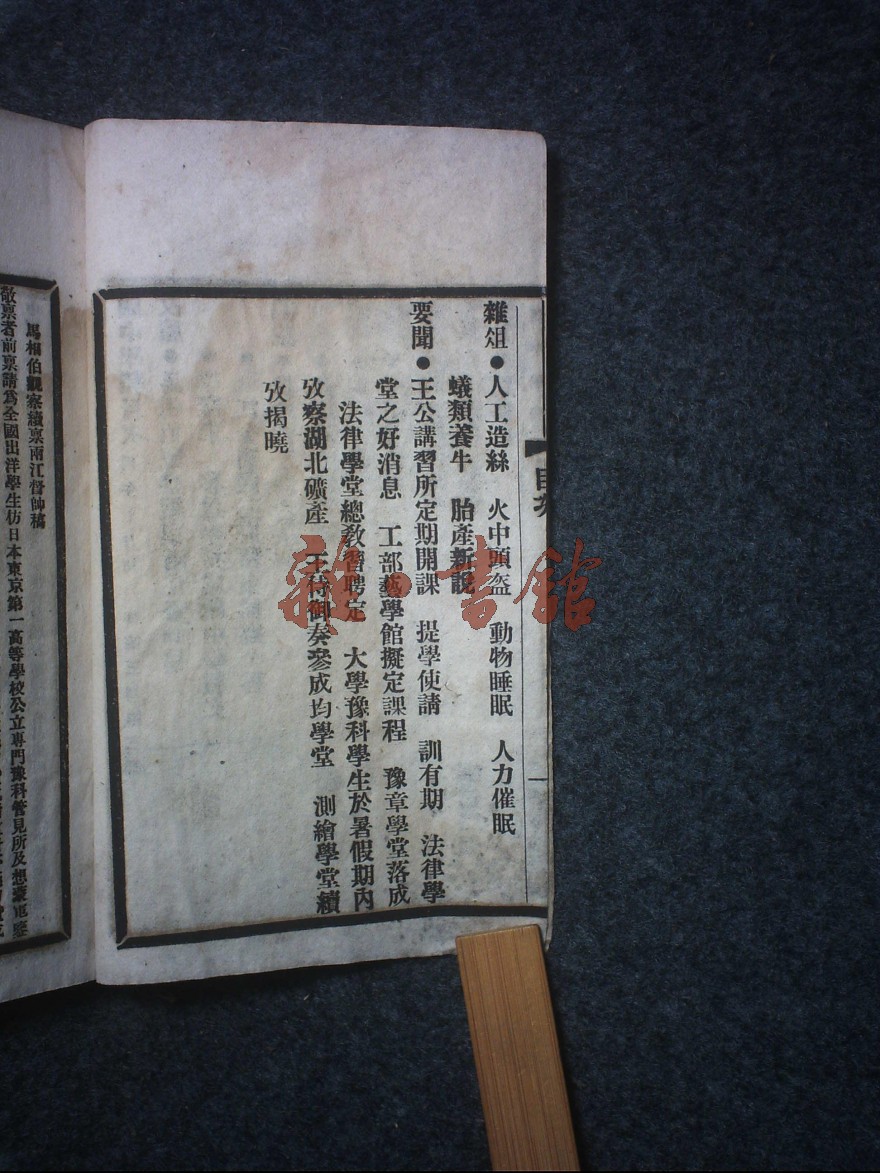 目次
雜俎●人工造絲　火中頭盔　動物睡眠　人力催眠
蟻類養牛　胎產新說
要聞●王公講習所定期開課　提學使請　訓有期　法律學
堂之好消息　工部藝學館擬定課程　豫章學堂落成
法律學堂總教習聘定　大學豫科學生於暑假期內
攷察湖北礦產　王侍御奏參成均學堂　測繪學堂續
攷揭曉
馬相伯觀察續稟兩江督帥稿
敬稟者前稟請爲全國出洋學生仿日本東京第一高等學校公立專門豫科管見所及想蒙
雜·書館